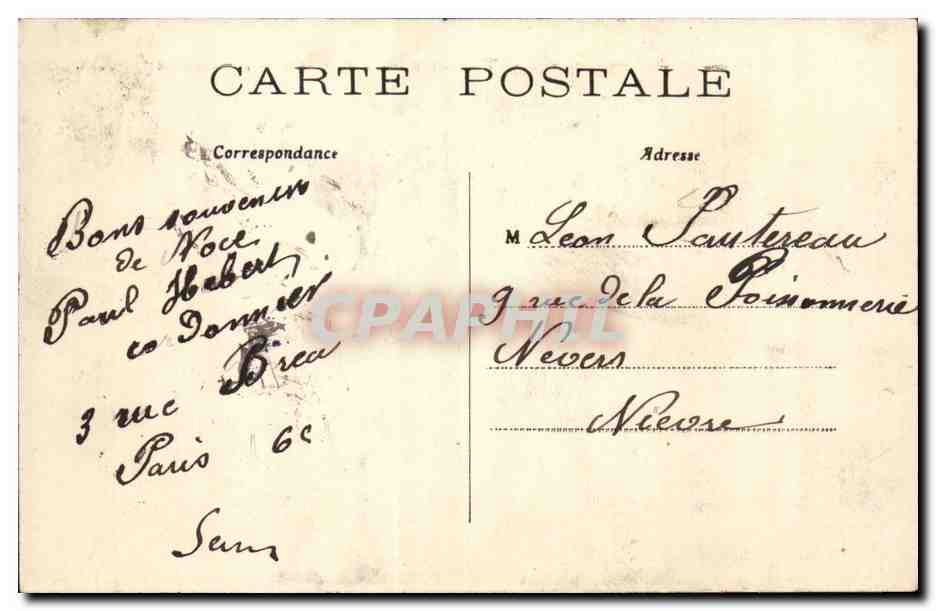 CARTE POSTALE
Correspondance
Bons souvenirs
de Noce
Paul Hebert
co Donnier
3 rue Brea
Paris 6e
Adresse
M Leon Pautereau
9 rue de la Poissonnerie
Nevers
Nievre
CPAPHIL